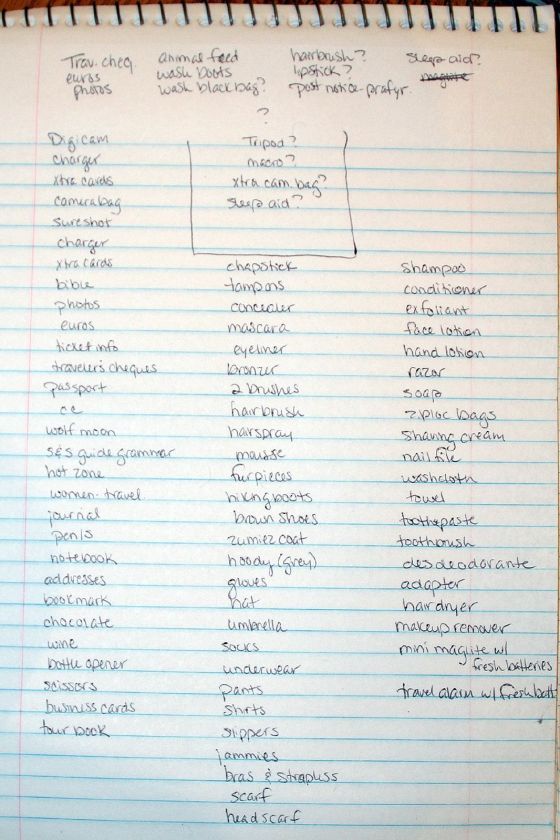 Trav. cheq
euros
photos
animal feed
wash boots
wash black bag?
hairbrush?
lipstick?
post notice-prafyr.
sleep aid?
maglite
?
Tripod?
macro?
xtra cam. bag?
sleep aid?
Digicam
charger
xtra cards
camera bag
sureshot
charger
xtra cards
bible
photos
euros
ticket info
traveler's cheques
passport
cc
wolf moon
S&S guide grammar
hot zone
women-travel
journal
pen/s
notebook
addresses
bookmark
chocolate
wine
bottle opener
scissors
business cards
tour book
chapstick
tampons
concealer
mascara
eyeliner
bronzer
2 brushes
hairbrush
hairspray
mousse
furpieces
hiking boots
brown shoes
zumiez coat
hoody (grey)
gloves
hat
umbrella
socks
underwear
pants
shirts
slippers
jammies
bras & strapless
scarf
headscarf
shampoo
conditioner
exfoliant
face lotion
hand lotion
razor
soap
ziploc bags
shaving cream
nail file
washcloth
towel
toothepaste
toothbrush
desdeodorante
adapter
hairdryer
makeup remover
mini maglite w/
fresh batteries
travel alarm w/ fresh batt